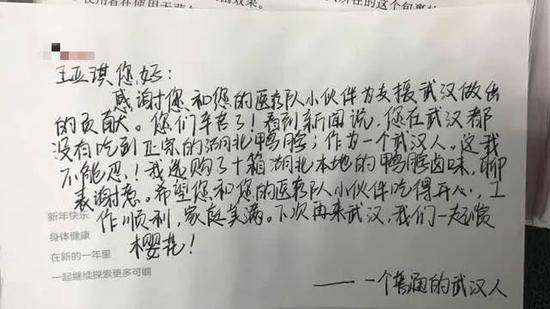 王亚琪您好：
感谢您和您的医疗队小伙伴为支援武汉做出
的贡献。您们辛苦了！看到新闻说，您在武汉都
没有吃到正宗的湖北鸭脖；作为一个武汉人，这我
不能忍！我选购了十箱湖北本地的鸭脖卤味，聊
表谢意。希望您和您的医疗队小伙伴吃得开心，工
作顺利，家庭美满。下次再来武汉，我们一起赏
樱花！
新年快乐
身体健康
在新的一年里
一起继续探索更多可能
——一个普通的武汉人